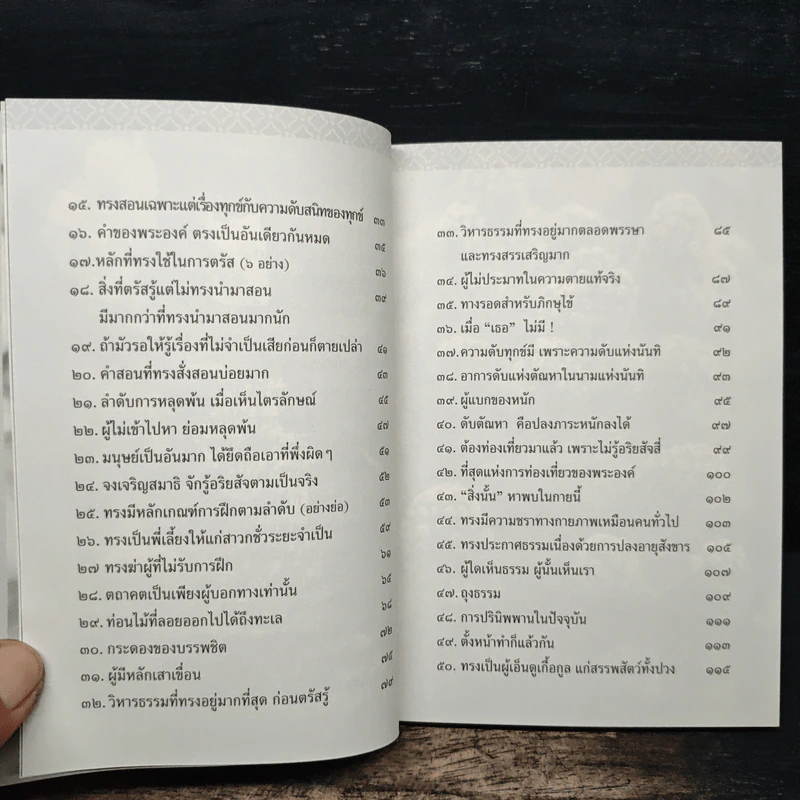 ๑๕. ทรงสอนเฉพาะแต่เรื่องทุกข์กับความดับสนิทของทุกข์ ๓๓
๑๖. คำของพระองค์ ตรงเป็นอันเดียวกันหมด ๓๕
๑๗.หลักที่ทรงใช้ในการตรัส (๖ อย่าง) ๓๖
๑๘. สิ่งที่ตรัสรู้แต่ไม่ทรงนำมาสอน ๓๙
มีมากกว่าที่ทรงนำมาสอนมากนัก
๑๙. ถ้ามัวรอให้รู้เรื่องที่ไม่จำเป็นเสียก่อนก็ตายเปล่า ๔๑
๒๐. คำสอนที่ทรงสั่งสอนบ่อยมาก ๔๓
๒๑. ลำดับการหลุดพ้น เมื่อเห็นไตรลักษณ์ ๔๕
๒๒. ผู้ไม่เข้าไปหา ย่อมหลุดพ้น ๔๗
๒๓. มนุษย์เป็นอันมาก ได้ยึดถือเอาที่พึ่งผิดๆ ๕๑
๒๔. จงเจริญสมาธิ จักรู้อริยสัจตามเป็นจริง ๕๒
๒๕. ทรงมีหลักเกณฑ์การฝึกตามลำดับ (อย่างย่อ) ๕๓
๒๖. ทรงเป็นพี่เลี้ยงให้แก่สาวกชั่วระยะจำเป็น ๕๙
๒๗ ทรงฆ่าผู้ที่ไม่รับการฝึก ๖๑
๒๘. ตถาคตเป็นเพียงผู้บอกทางเท่านั้น ๖๕
๒๙. ท่อนไม้ที่ลอยออกไปได้ถึงทะเล ๖๘
๓๐. กระดองของบรรพชิต ๗๒
๓๑. ผู้มีหลักเสาเขื่อน ๗๕
๓๒. วิหารธรรมที่ทรงอยู่มากที่สุด ก่อนตรัสรู้ ๗๙
๓๓. วิหารธรรมที่ทรงอยู่มากตลอดพรรษา ๘๕
และทรงสรรเสริญมาก
๓๔. ผู้ไม่ประมาทในความตายแท้จริง ๘๗
๓๕. ทางรอดสำหรับภิกษุไข้ ๘๙
๓๖. เมื่อ “เธอ” ไม่มี ! ๙๑
๓๗. ความดับทุกข์มี เพราะความดับแห่งนันทิ ๙๒
๓๘. อาการดับแห่งตัณหาในนามแห่งนันทิ ๙๓
๓๙. ผู้แบกของหนัก ๙๕
๔๐. ดับตัณหา คือปลงภาระหนักลงได้ ๙๗
๔๑. ต้องท่องเที่ยวมาแล้ว เพราะไม่รู้อริยสัจสี่ ๙๙
๔๒. ที่สุดแห่งการท่องเที่ยวของพระองค์ ๑๐๐
๔๓. “สิ่งนั้น” หาพบในกายนี้ ๑๐๒
๔๔. ทรงมีความชราทางกายภาพเหมือนคนทั่วไป ๑๐๓
๔๕. ทรงประกาศธรรมเนื่องด้วยการปลงอายุสังขาร ๑๐๕
๔๖. ผู้ใดเห็นธรรม ผู้นั้นเห็นเรา ๑๐๗
๔๗. ถุงธรรม ๑๐๙
๔๘. การปรินิพพานในปัจจุบัน ๑๑๑
๔๙. ตั้งหน้าทำก็แล้วกัน ๑๑๓
๕๐. ทรงเป็นผู้เอ็นดูเกื้อกูล แก่สรรพสัตว์ทั้งปวง ๑๑๕